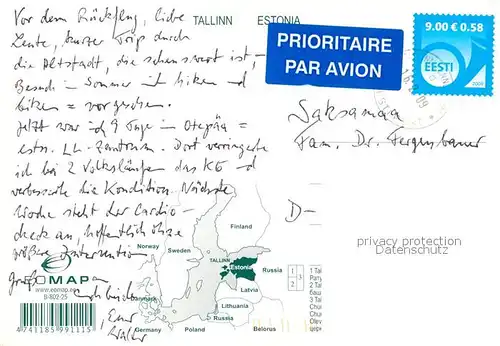 TALLINN ESTONIA
Vor dem Rückflug, liebe
Leute, kurzer Trip durch
die Altstadt, die sehenswert ist,
Besuch im Sommer mit biken und
hiken = vorgesehen.
Jetzt war ich 9 Tage in Otepää =
estn. LL-Zentrum. Dort verringerte
ich bei 2 Volksläufen das KG und
verbesserte die Kondition. Nächste
Woche steht der Cardio-
check an, hoffentlich ohne
größere Intervention
PRIORITAIRE
PAR AVION
9.00 € 0.58
EESTI
Saksamaa
Fam. Dr. Fergenbauer
D-
privacy protection
Datenschutz
Finland
Norway
Sweden
TALLINN
Estonia
Russia
Latvia
Denmark
Lithuania
Russia
Germany
Poland
Belorus
EOMAP
www.eomap.ee
8-802-25
4741185991115
Euer
Walter